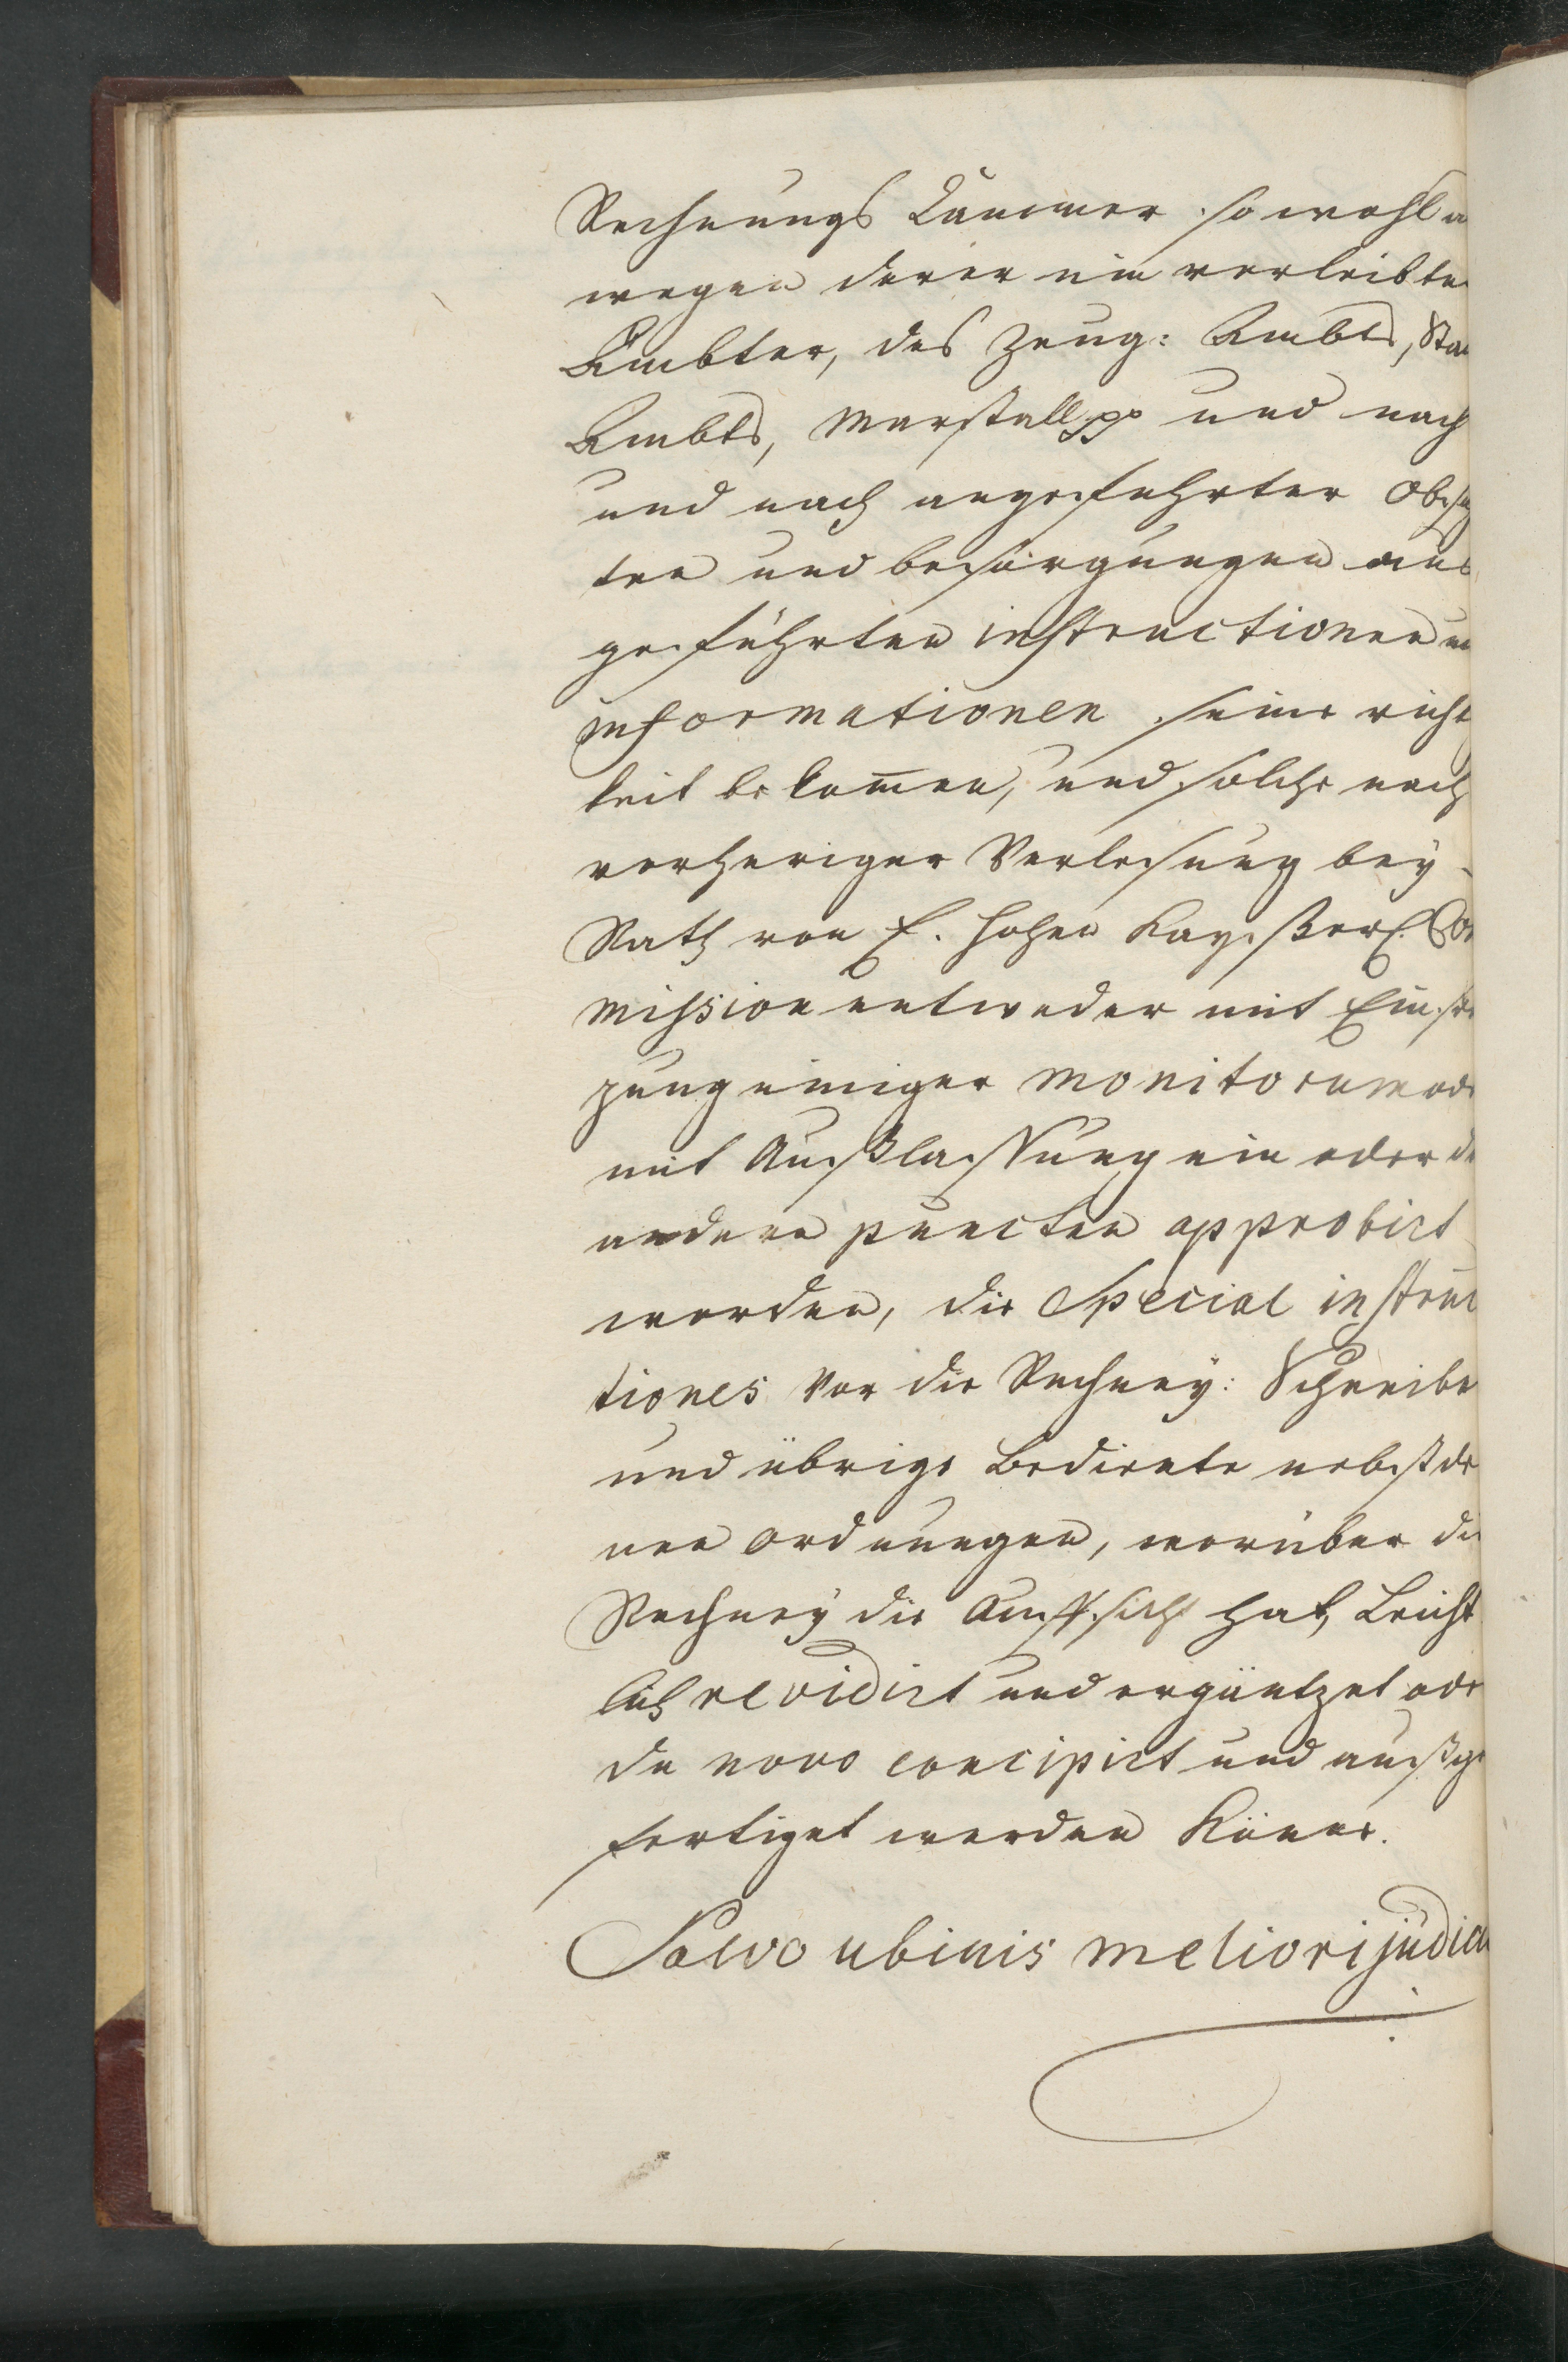 Rechnungs Cammer so wohl
wegen derer ein verleibte
Ämbter, des Zeug: Ambts,
Ambts, Marstall pp und nach
und nach angeführter
ten und besorgungen aus
geführten instructionen
informationen seine richt
keit bekom̅en, und solche nach
vorheriger Verlesung bey
Rath von E. hohen Kayßerl. Co
mission entweder mit Einse
zung einiger monitorum ode
mit Außlaßung ein oder d
andern puncten approbirt
worden, die Special instruc
tiones vor die Rechney: Schreibe
und übrige Bediente nebst de
nen ordnungen, worüber die
Rechney die Auffsicht hat, Leicht
lich revidirt und ergäntzet ode
de novo concipirt und außge
fertiget werden Köñe.
Salvo ubivis meliori judici